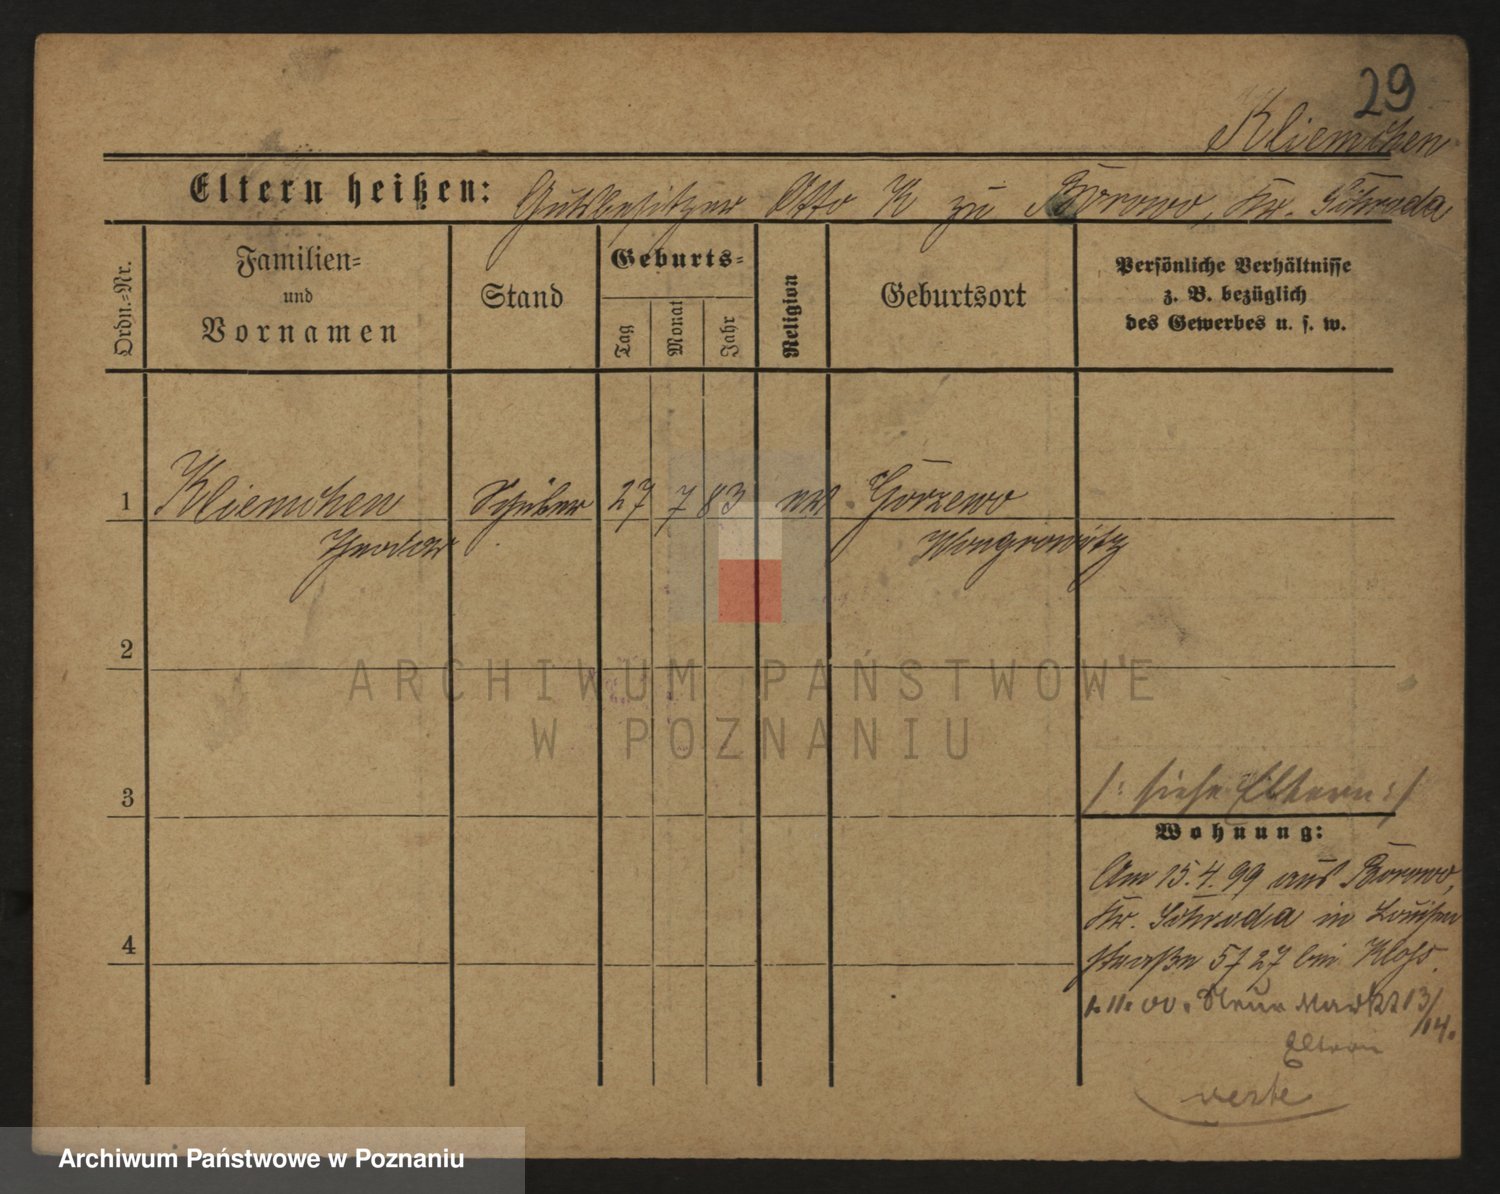 29
Kliemchen
Eltern heißen: Gutsbesitzer Otto K zu Borowo, Kr. Schroda
Ordn.-Nr.
Familien-
und
Vornamen
Stand
Geburts-
Tag
Monat
Jahr
Religion
Geburtsort
Persönliche Verhältnisse
z. B. bezüglich
des Gewerbes u. s. w.
1 Kliemchen Schüler 27 7 83 ev Gorzewo
Theodor Wongrowitz
2
ARCHIWUM PAŃSTWOWE
W POZNANIU
3
/: siehe Eltern :/
Wohnung:
Am 15.4.99 aus Borowo,
Kr. Schroda in Louisen
4
straße 5/27 bei Kloss.
1. 11. 00. Neue Markt 13/
14.
Eltern
verte
Archiwum Państwowe w Poznaniu